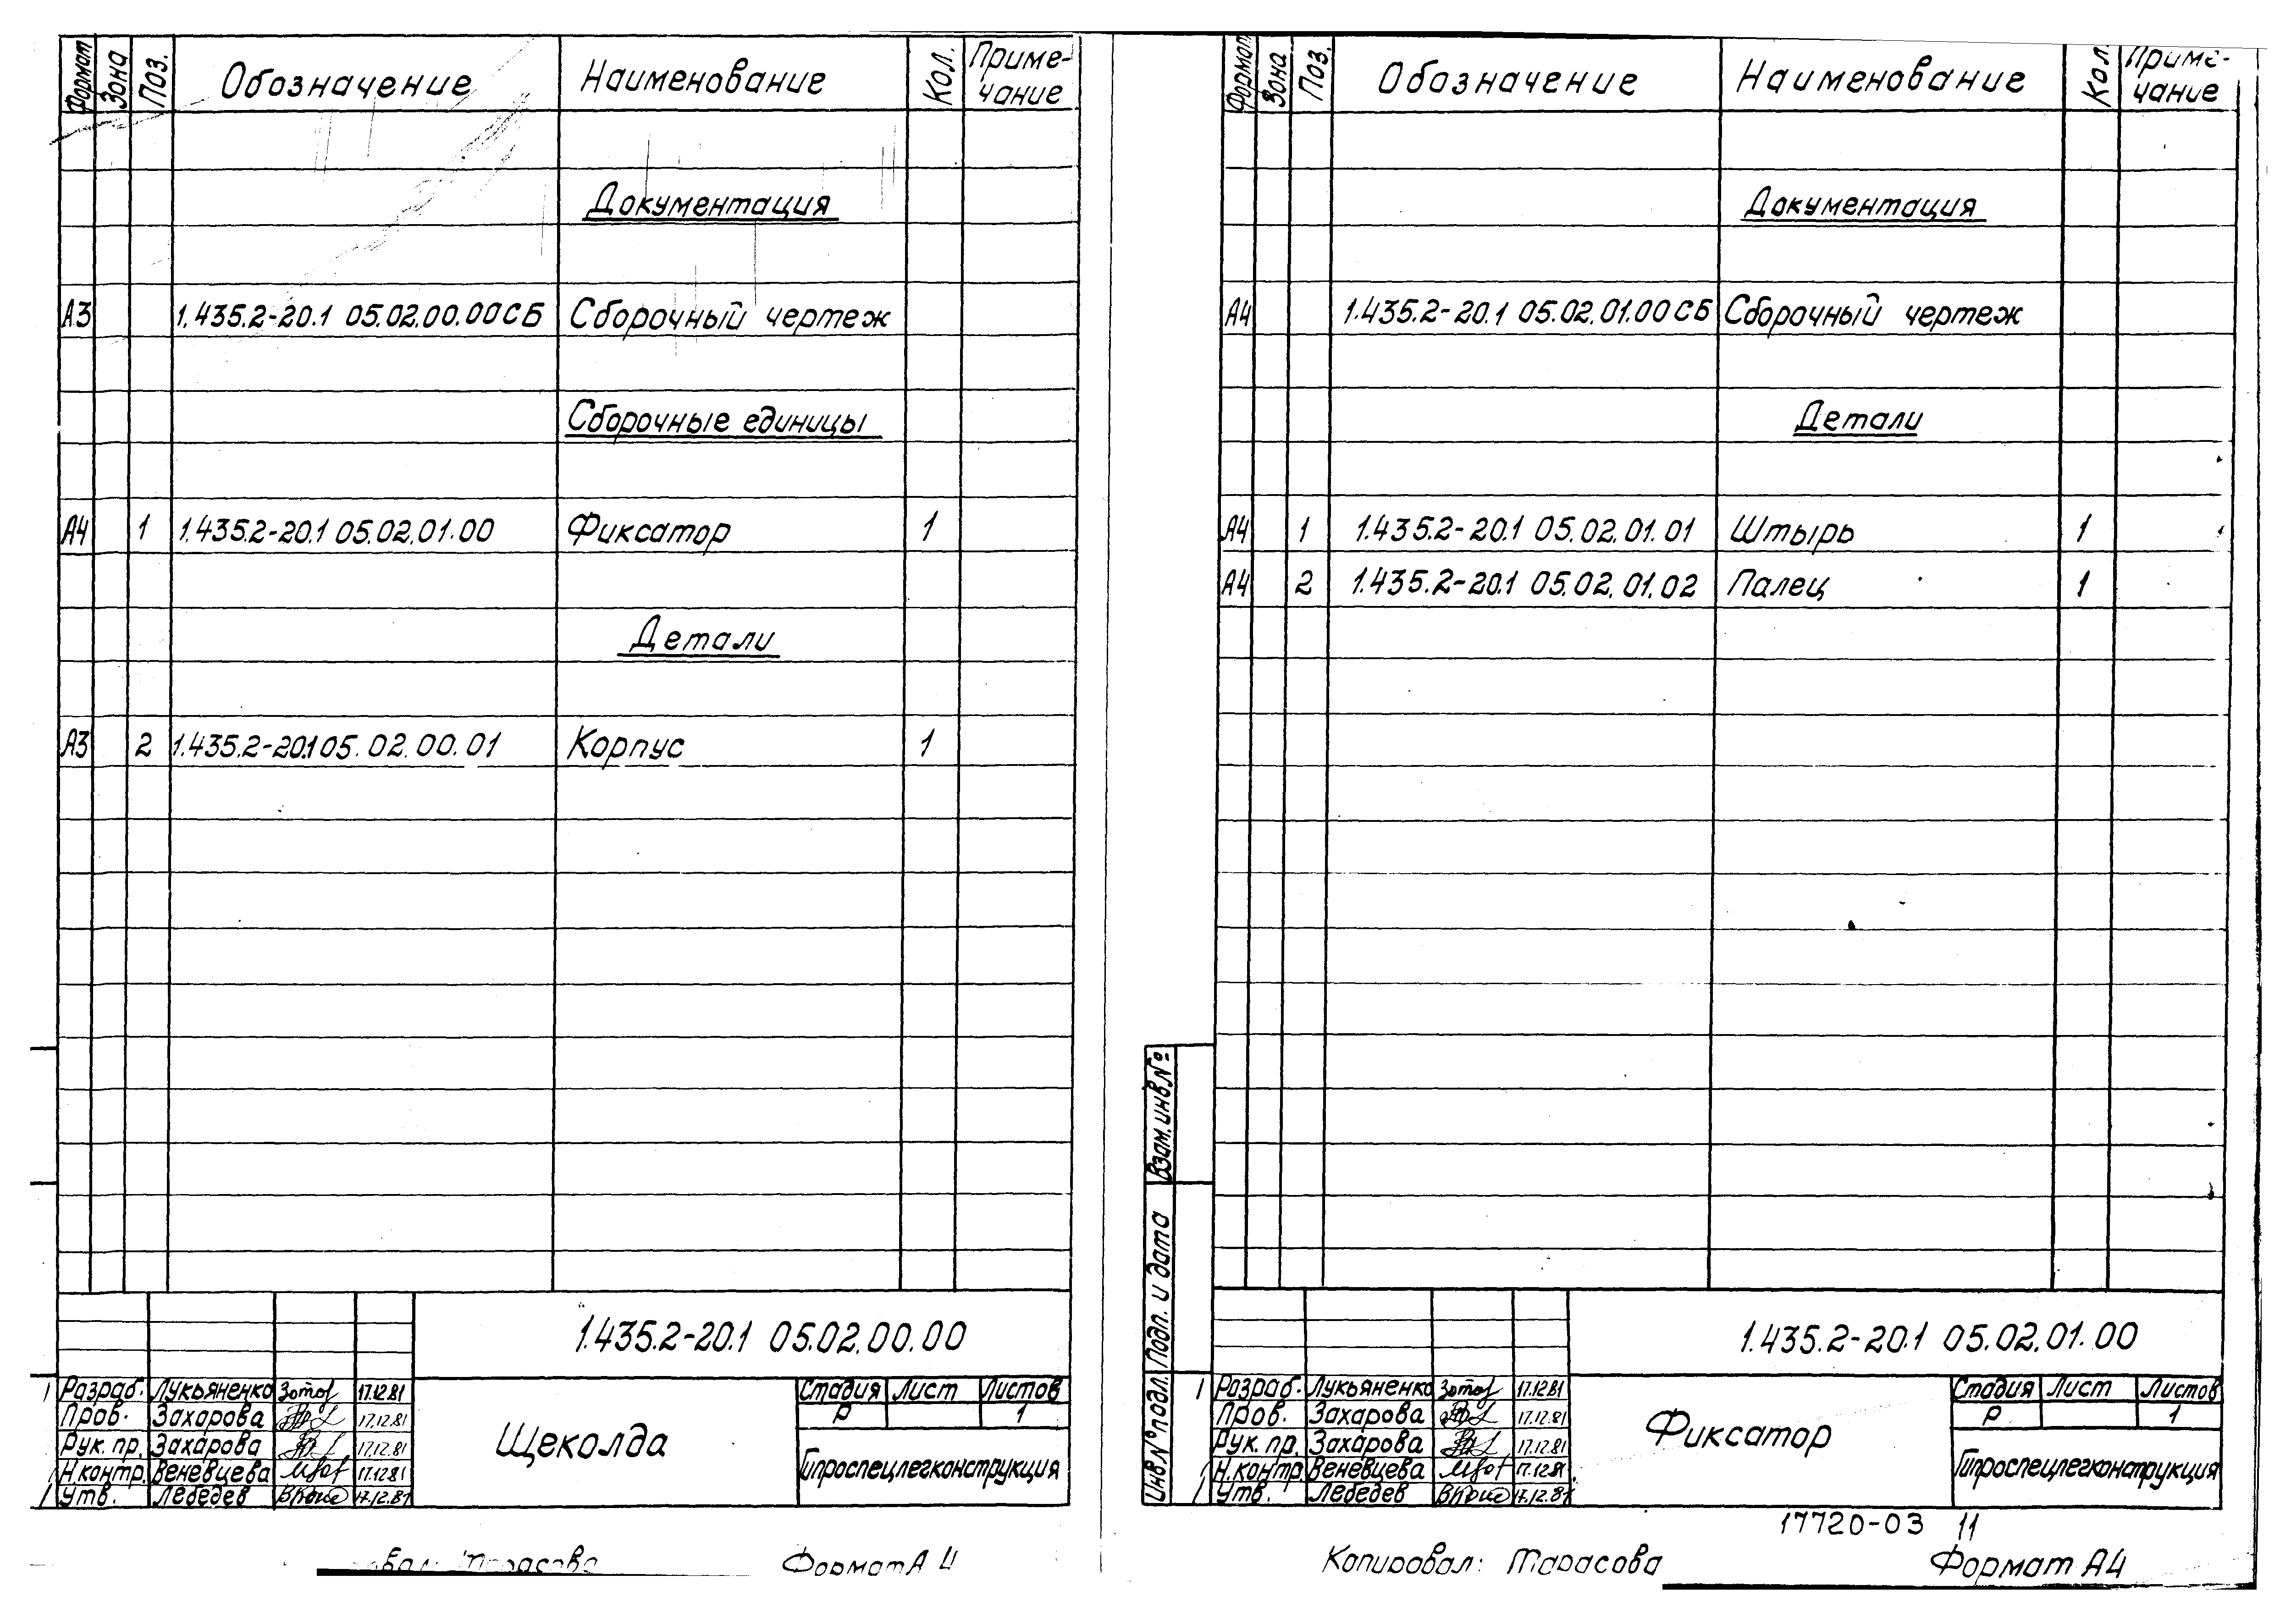 Формат Зона Поз. Обозначение Наименование Кол. Приме-
чание
Документация
А3 1.435.2-20.1 05.02.00.00СБ Сборочный чертеж
Сборочные единицы
А4 1 1.435.2-20.1 05.02.01.00 Фиксатор 1
Детали
А3 2 1.435.2-20.1 05.02.00.01 Корпус 1
1.435.2-20.1 05.02.00.00
Разраб. Лукьяненко 17.12.81
Пров. Захарова 17.12.81
Рук. пр. Захарова 17.12.81
Н.контр. Веневцева 17.12.81
Утв. Лебедев 17.12.81
Щеколда
Стадия Лист Листов
Р 1
Гипроспецлегконструкция
Формат А4
Формат Зона Поз. Обозначение Наименование Кол. Приме-
чание
Документация
А4 1.435.2-20.1 05.02.01.00СБ Сборочный чертеж
Детали
А4 1 1.435.2-20.1 05.02.01.01 Штырь 1
А4 2 1.435.2-20.1 05.02.01.02 Палец 1
Взам.инв.№
Подп. и дата
Инв.№подл.
1.435.2-20.1 05.02.01.00
Разраб. Лукьяненко 17.12.81
Пров. Захарова 17.12.81
Рук. пр. Захарова 17.12.81
Н.контр. Веневцева 17.12.81
Утв. Лебедев 17.12.81
Фиксатор
Стадия Лист Листов
Р 1
Гипроспецлегконструкция
17720-03 11
Копировал: Тарасова Формат А4